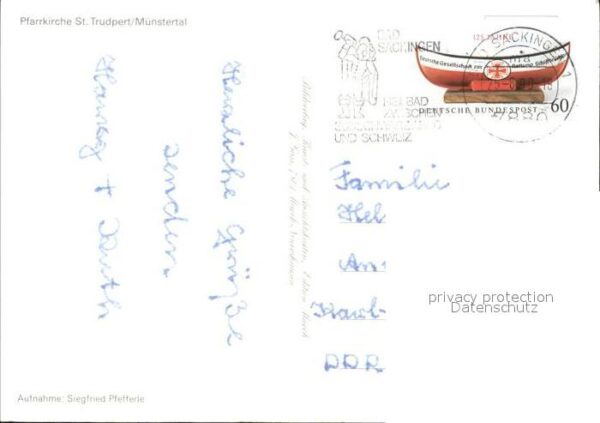 Pfarrkirche St. Trudpert/Münstertal
Herzliche Grüße
senden
Hansy + Ruth
Aufnahme: Siegfried Pfefferle
BAD
SÄCKINGEN
HEILBAD
ZWISCHEN
UND SCHWEIZ
125 JAHRE
Deutsche Gesellschaft zur Rettung Schiffbrüchiger
DEUTSCHE BUNDESPOST
60
BAD SÄCKINGEN 1
7880
Familie
Hel
Am
Karl-
DDR
privacy protection
Datenschutz